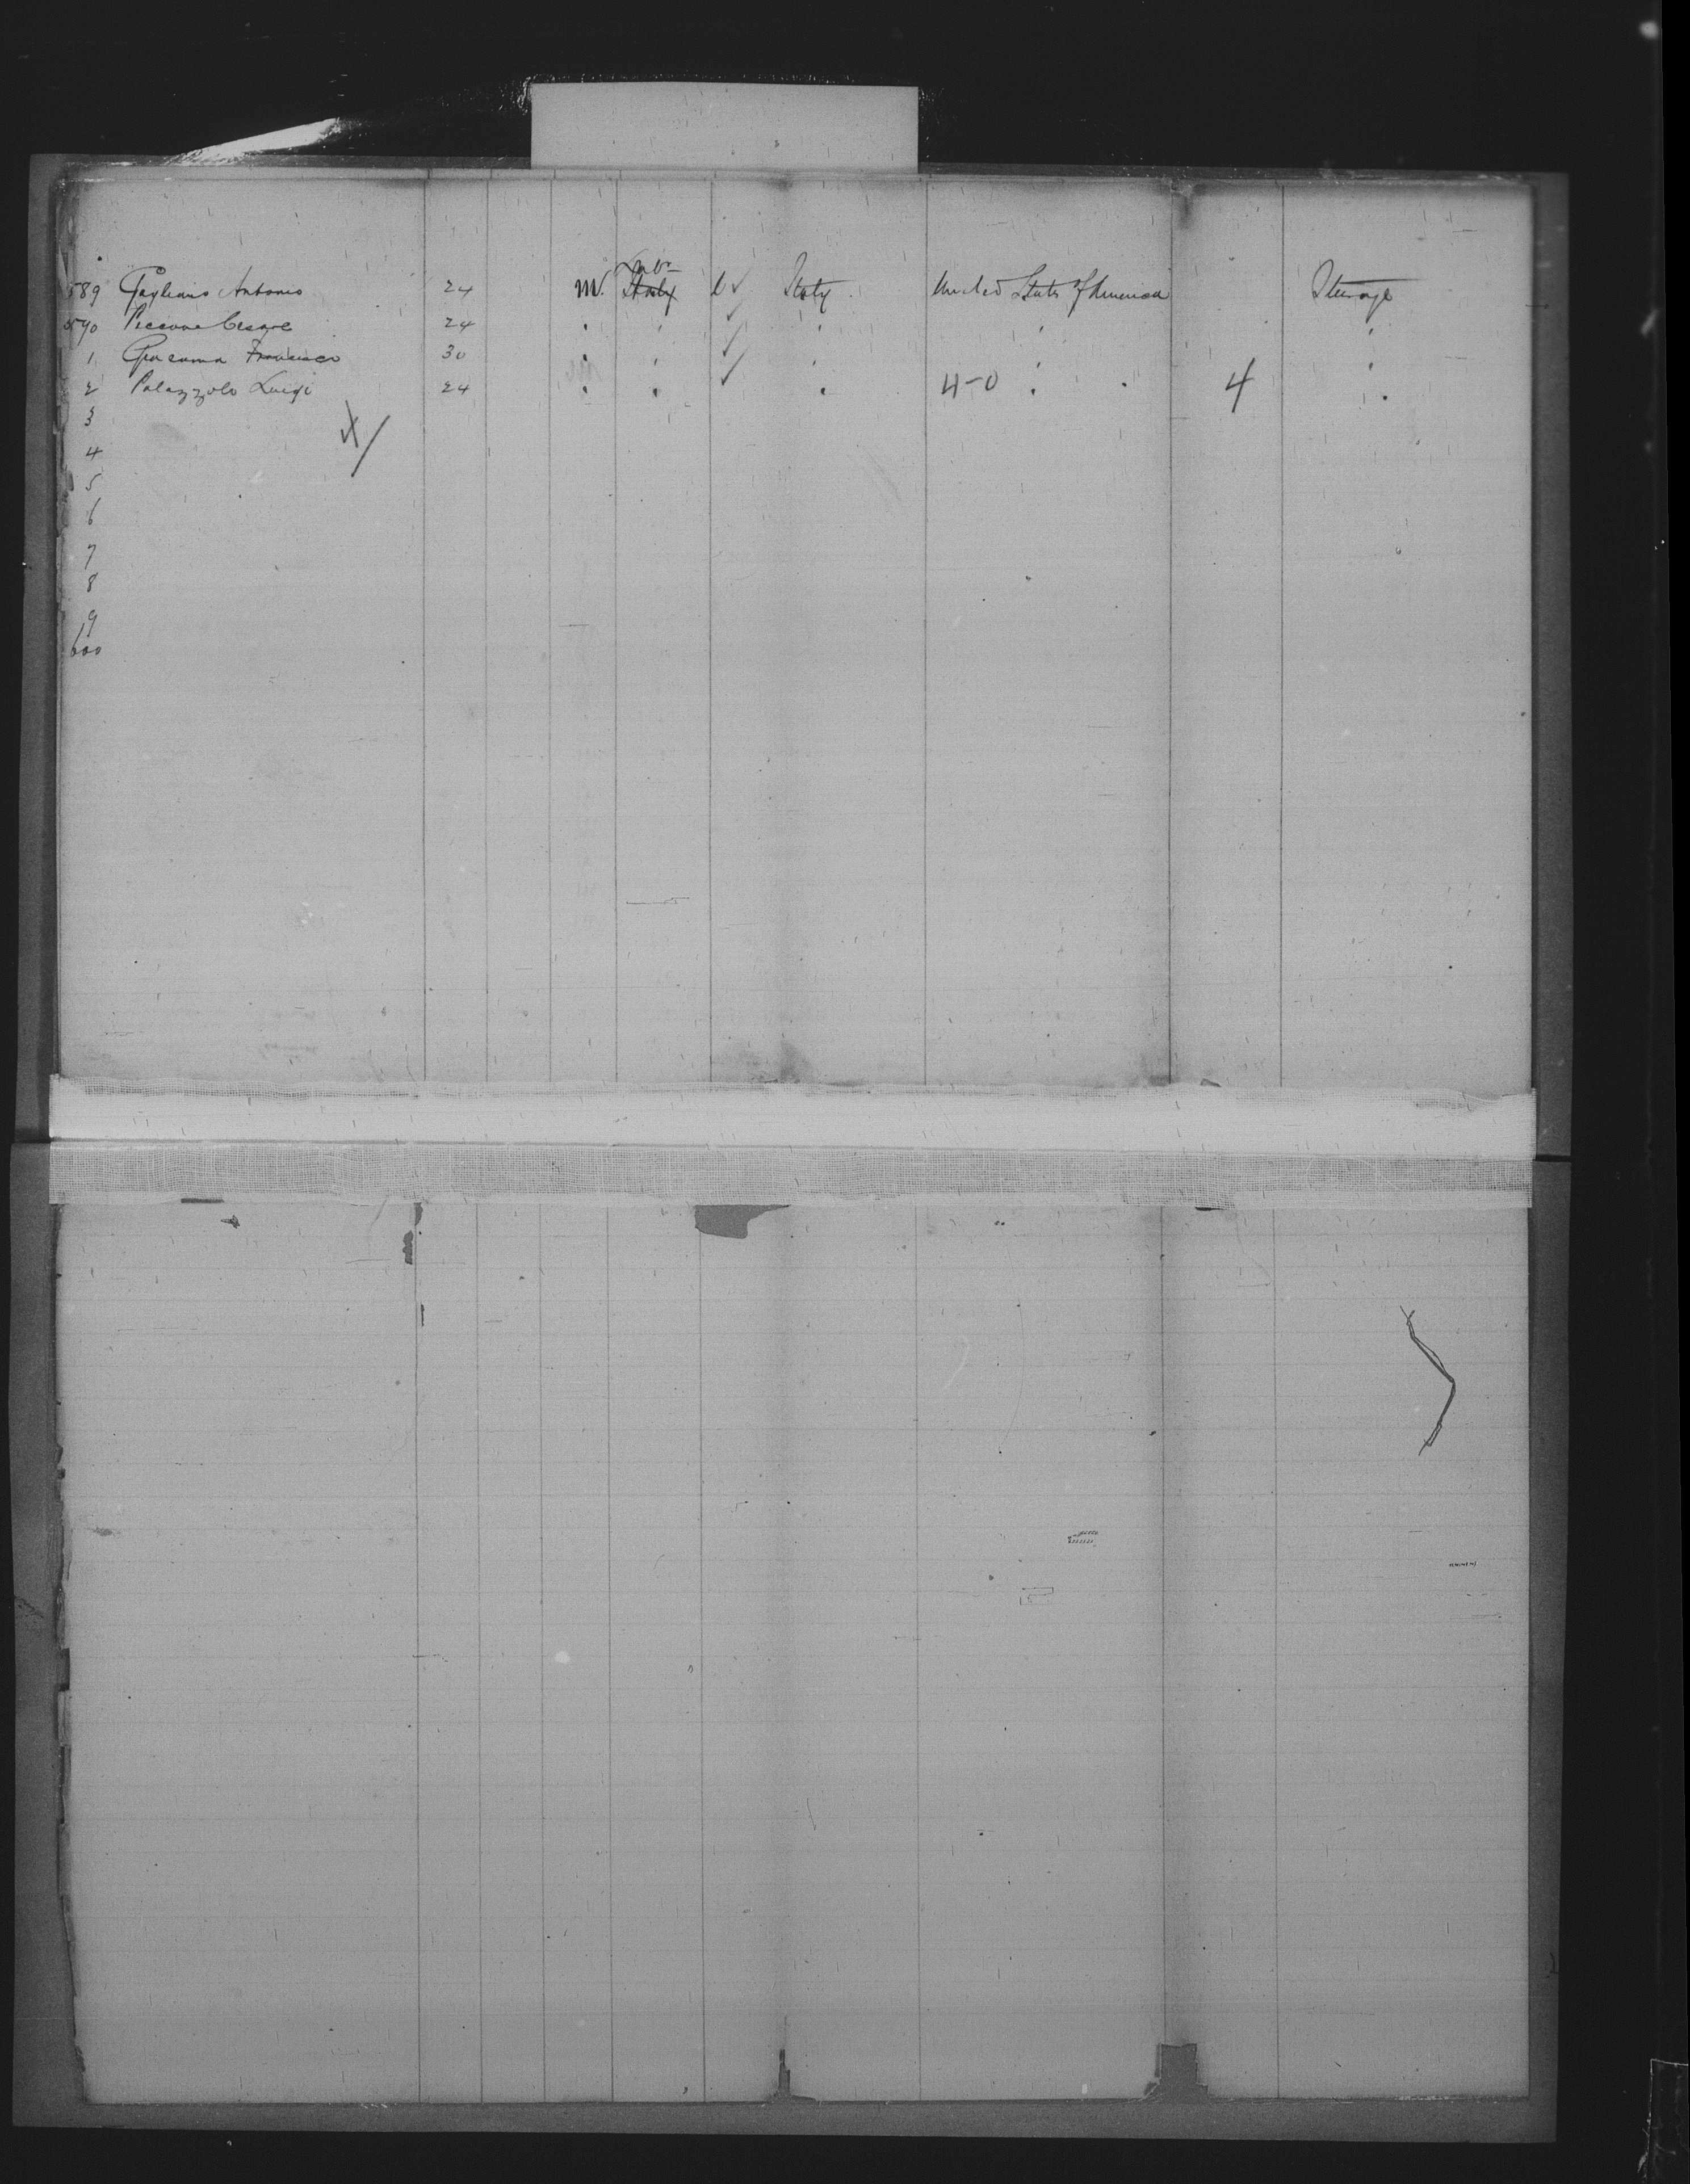 589 Gagliano Antonio 24 M. Labr Italy ✓ Italy United States of America Steerage
590 Piccone Cesare 24 " " ✓ " " "
1 Giacoma Francesco 30 " " ✓ " " "
2 Palazzolo Luigi 24 " " ✓ " 4-0 " " 4 "
3
4
5
6
7
8
9
600